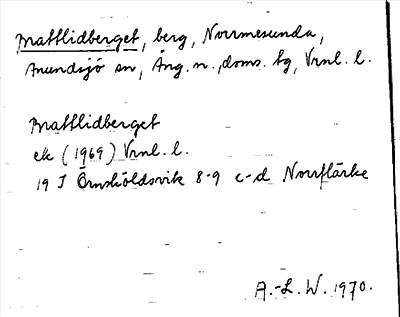 Brattlidberget, berg, Norrmesunda,
Anundsjö sn, Ång. n., doms. tg, Vrnl. l.
Brattlidberget
ek (1969) Vrnl. l.
19 J Örnsköldsvik 8-9 c-d Norrflärke
A.-L. W. 1970.